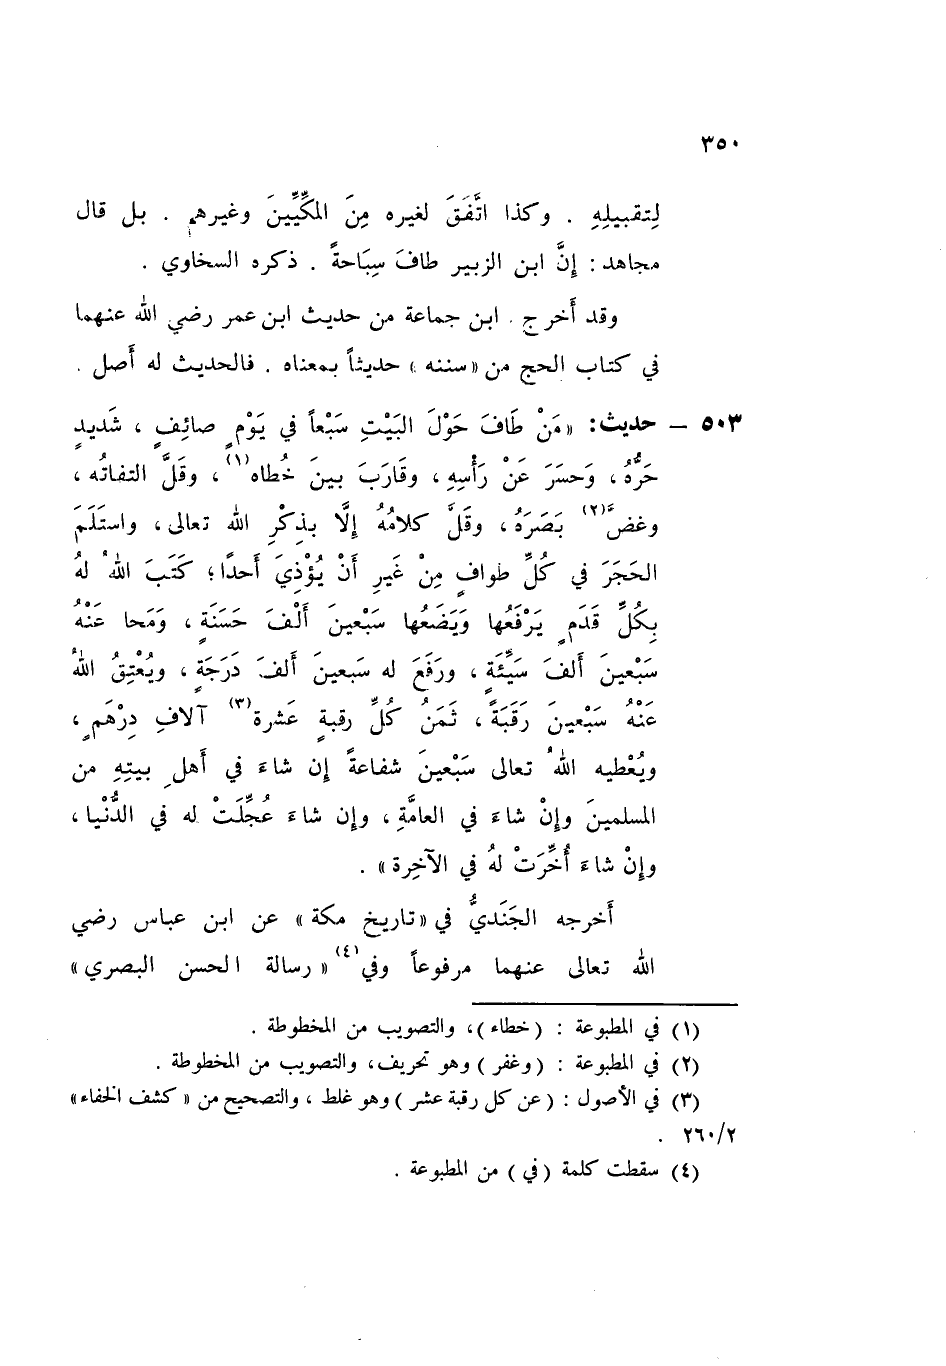 ٣٥٠
لِتقبيلِهِ . وكذا اتَّفَقَ لغيره مِنَ المكِّيِّينَ وغيرهم . بل قال
مجاهد : إنَّ ابن الزبير طافَ سِبَاحةً . ذكره السخاوي .
وقد أَخرج . ابن جماعة من حديث ابن عمر رضي الله عنهما
في كتاب الحج من «سننه» حديثاً بمعناه . فالحديث له أَصل .
٥٠٣ – حديث: «مَنْ طَافَ حَوْلَ البَيْتِ سَبْعاً في يَوْمٍ صائِفٍ ، شَديدٍ
حَرُّهُ ، وَحسَرَ عَنْ رَأْسِهِ ، وقَارَبَ بينَ خُطاه(١) ، وقَلَّ التفاتُه ،
وغضَّ(٢) بَصَرَهُ ، وقَلَّ كلامُهُ إلَّا بذِكْرِ الله تعالى ، واستَلَمَ
الحَجَرَ في كُلِّ طوافٍ مِنْ غَيرِ أَنْ يُؤْذِيَ أَحدًا ؛ كَتَبَ اللهُ لهُ
بِكُلِّ قَدَمٍ يَرْفَعُها وَيَضَعُها سَبْعينَ أَلْفَ حَسَنَةٍ ، وَمَحا عَنْهُ
سَبْعينَ أَلفَ سَيِّئَةٍ ، ورَفَعَ له سَبعينَ أَلفَ دَرَجَةٍ ، ويُعْتِقُ اللهُ
عَنْهُ سَبْعينَ رَقَبَةً ، ثَمَنُ كُلِّ رقبةٍ عَشرة(٣) آلافِ دِرْهَمٍ ،
ويُعْطيه اللهُ تعالى سَبْعينَ شفاعةً إن شاءَ في أَهلِ بيتِهِ من
المسلمينَ وإنْ شاءَ في العامَّةِ ، وإن شاءَ عُجِّلَتْ له في الدُّنْيا ،
وإنْ شاءَ أُخِّرَتْ لهُ في الآخِرة» .
أَخرجه الجَنَديُّ في «تاريخ مكة» عن ابن عباس رضي
الله تعالى عنهما مرفوعاً وفي(٤) «رسالة الحسن البصري»
(١) في المطبوعة : (خطاء)، والتصويب من المخطوطة .
(٢) في المطبوعة : (وغفر) وهو تحريف، والتصويب من المخطوطة .
(٣) في الأصول : (عن كل رقبة عشر) وهو غلط ، والتصحيح من «كشف الخفاء»
٢٦٠/٢ .
(٤) سقطت كلمة (في) من المطبوعة .